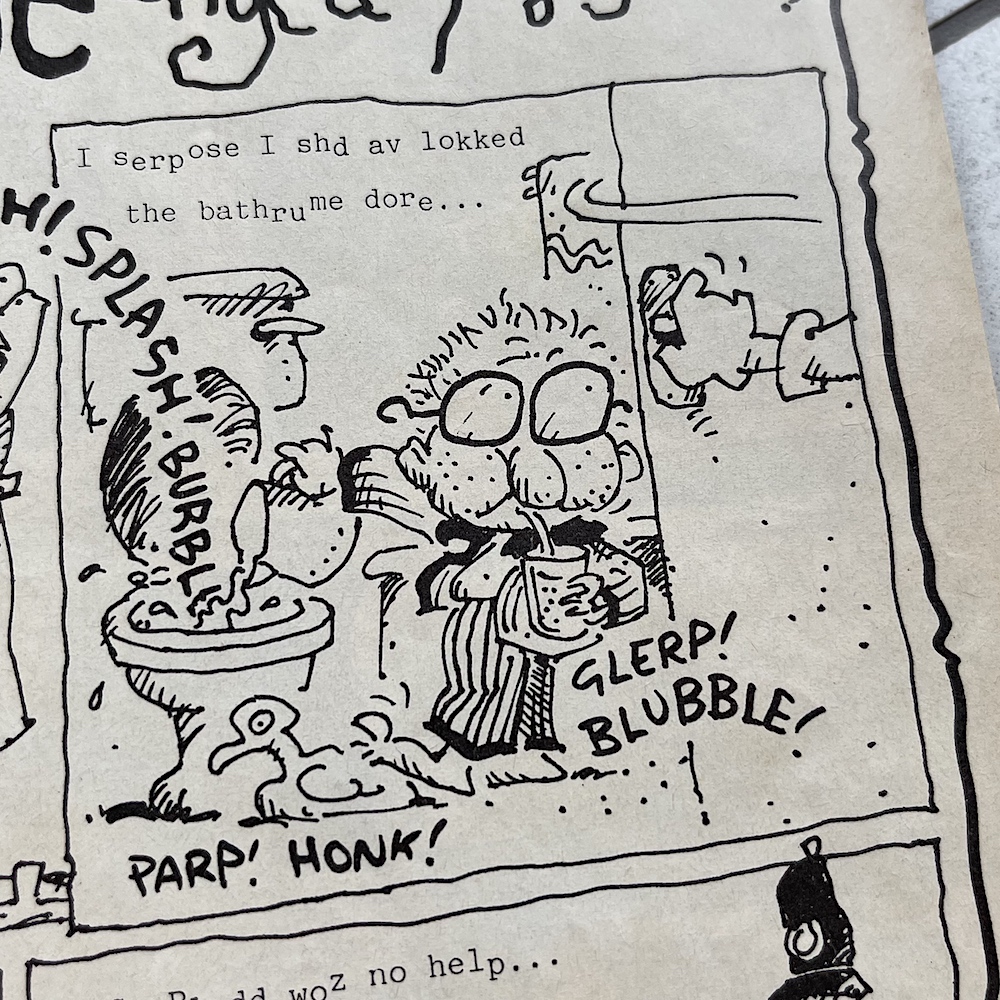 I serpose I shd av lokked
the bathrume dore...
H! SPLASH! BURBLE
GLERP!
BLUBBLE!
PARP! HONK!
woz no help...